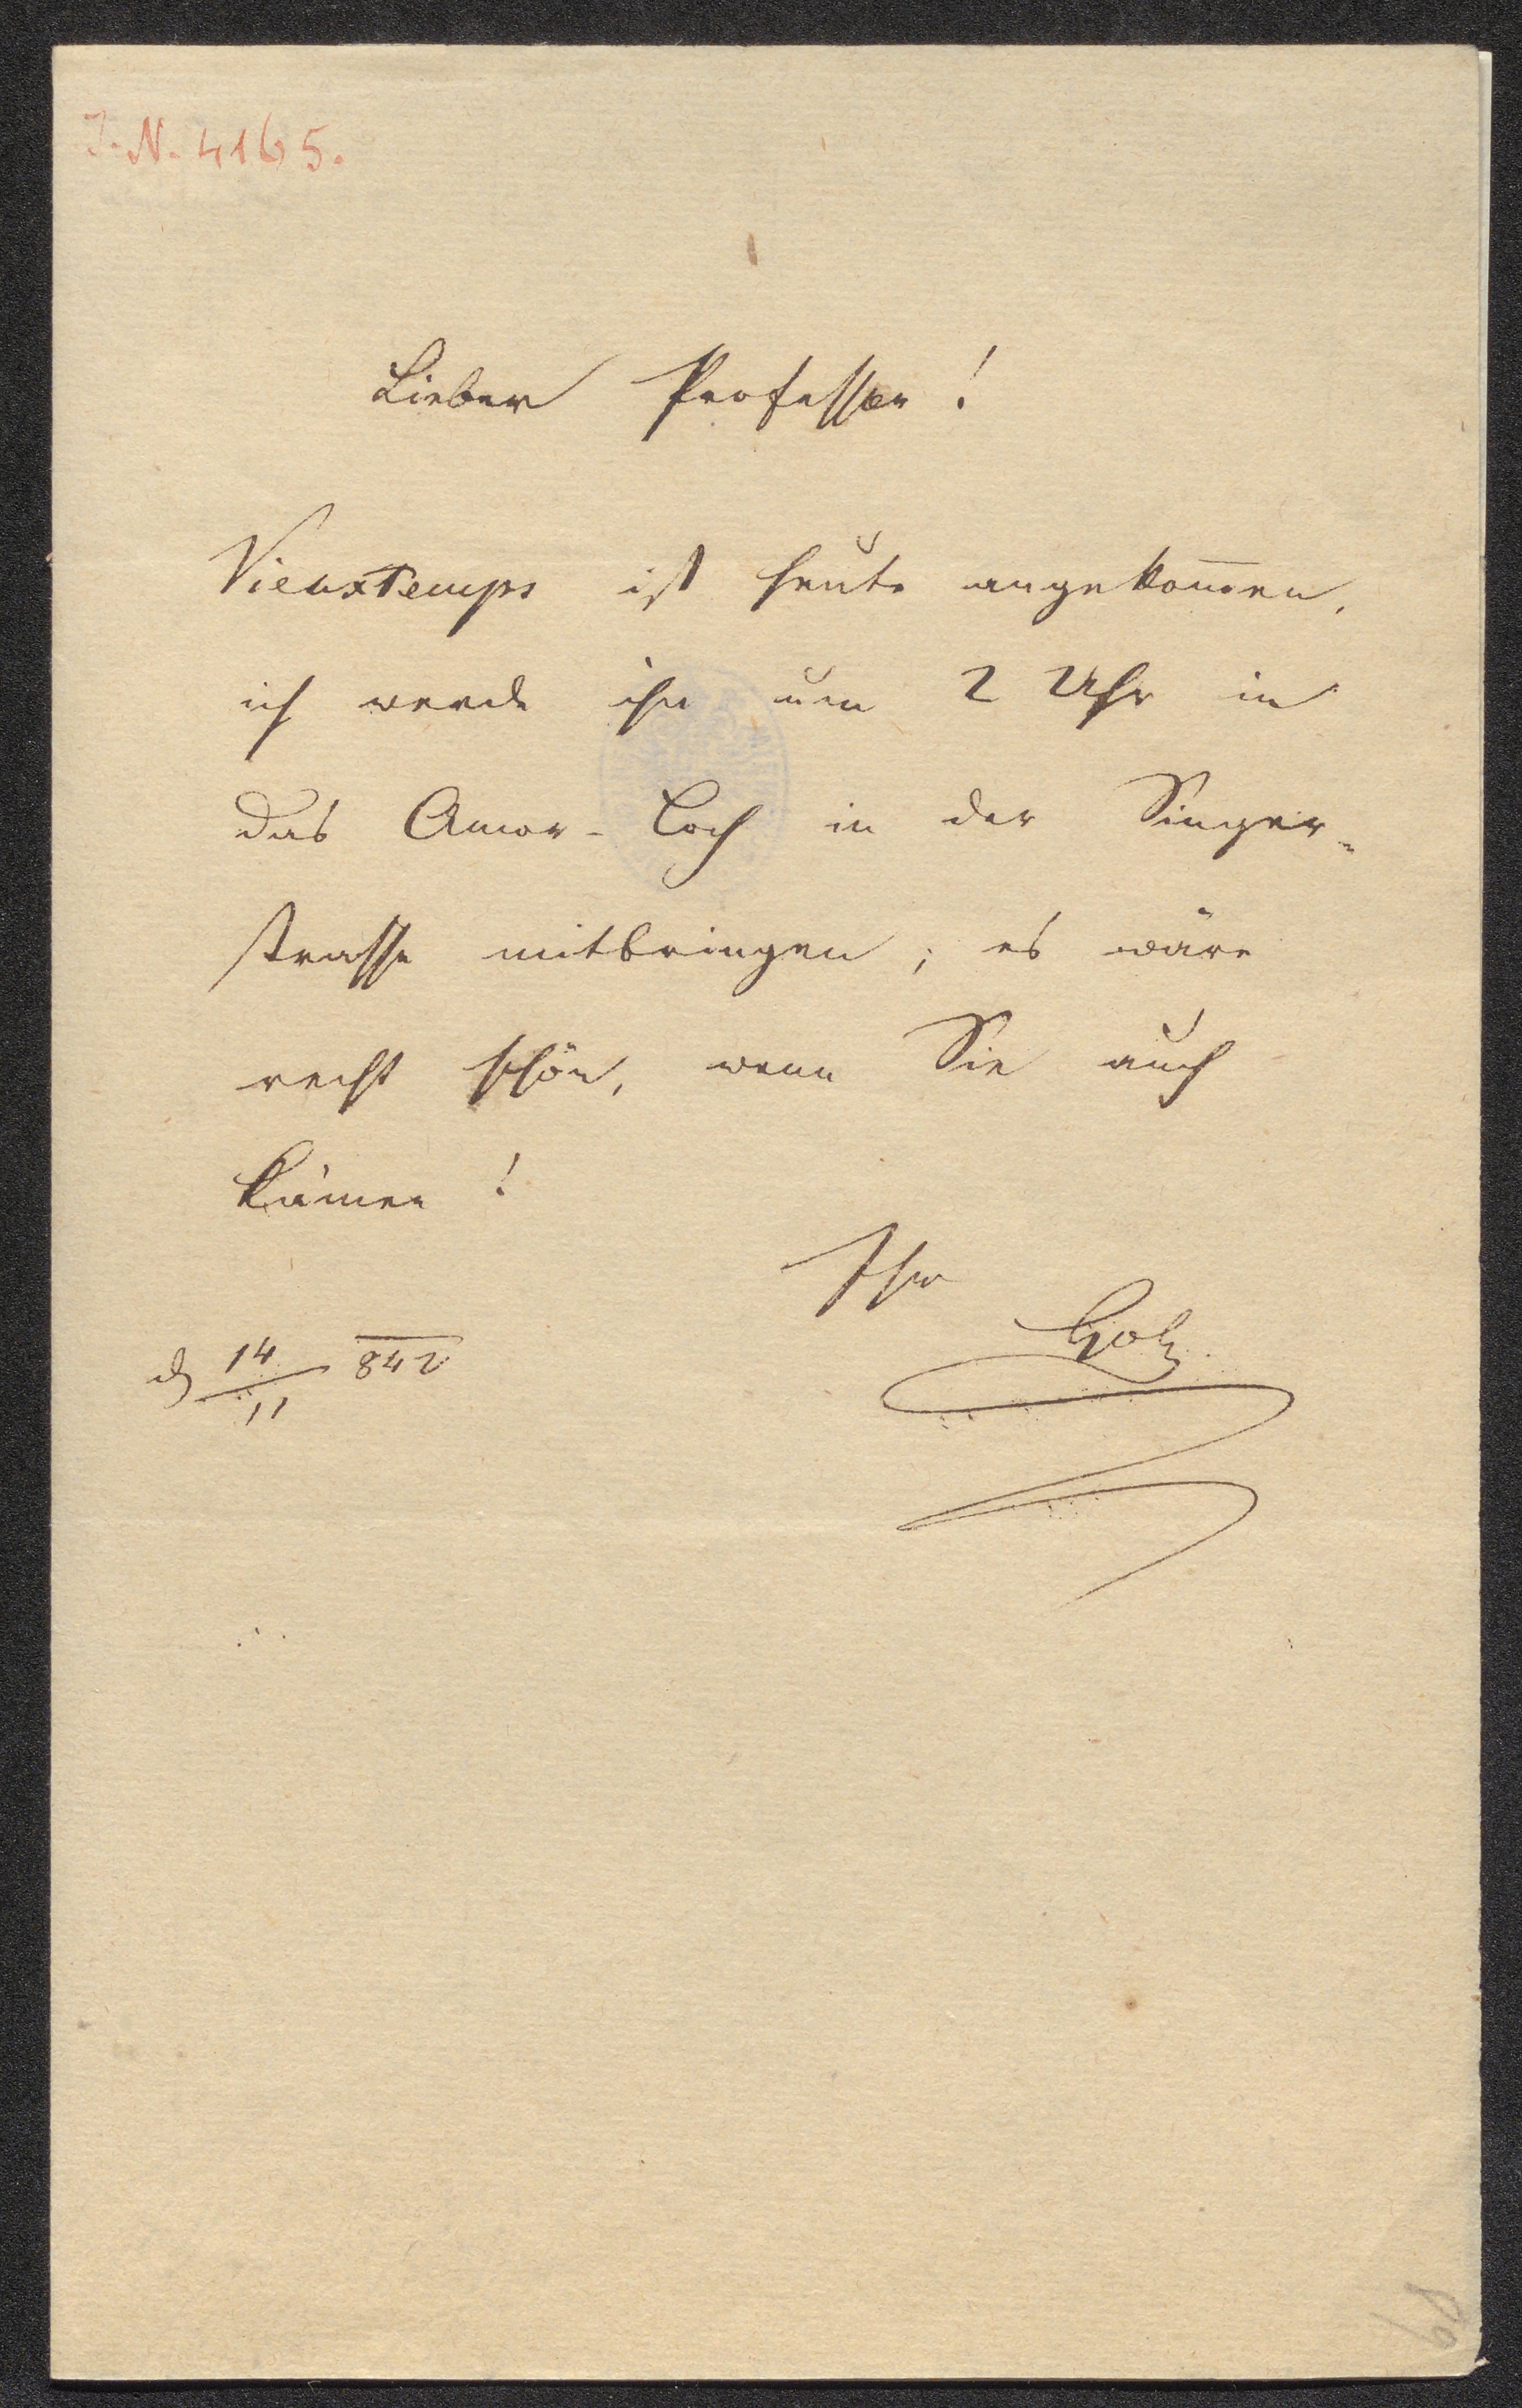 J. N. 4165.
Lieber Professor!
Vieuxtemps ist heute angekom̅en,
ich werde ihn um 2 Uhr in
das Amor-Loch in der Singer-
strasse mitbringen; es wäre
recht schön, wenn Sie auch
kämen!
Ihr
Holz
d 14/11 842
89